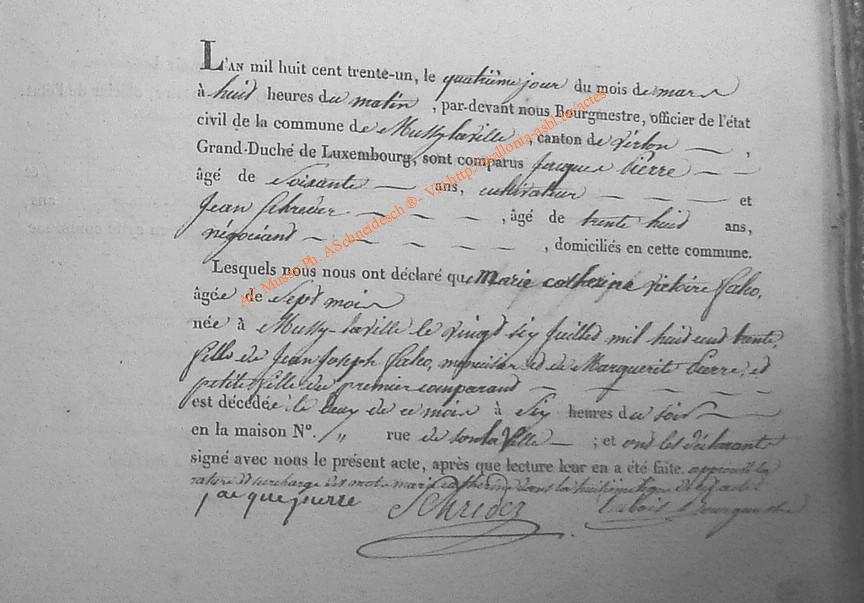 L'AN mil huit cent trente-un, le quatrième jour du mois de mars
à huit heures du matin, par-devant nous Bourgmestre, officier de l'état
civil de la commune de Mussy-laville, canton de virton,
Grand-Duché de Luxembourg, sont comparus Jacques Pierre
âgé de soixante ans, cultivateur et
Jean Schreder, âgé de trente huit ans,
négociand, domiciliés en cette commune.
Lesquels nous nous ont déclaré que Marie catherine victoire
âgée de sept mois
née à Mussy-laville le vingt six Juillet mil huit cent trente,
fille de Jean Joseph, menuisier et de Marguerite Pierre, et
petite fille du premier comparand
est décédée le deux de ce mois à six heures du soir
en la maison N°. " rue de; et ont les déclarants
signé avec nous le présent acte, après que lecture leur en a été faite. approuvé la
rature et surcharge des mots marie catherine dans la huitième ligne
jacque pierre Schreder Bourgmestre
AC Mussy Ph. ASchneidesch ®- Via http://wallonia-asbl.be/actes